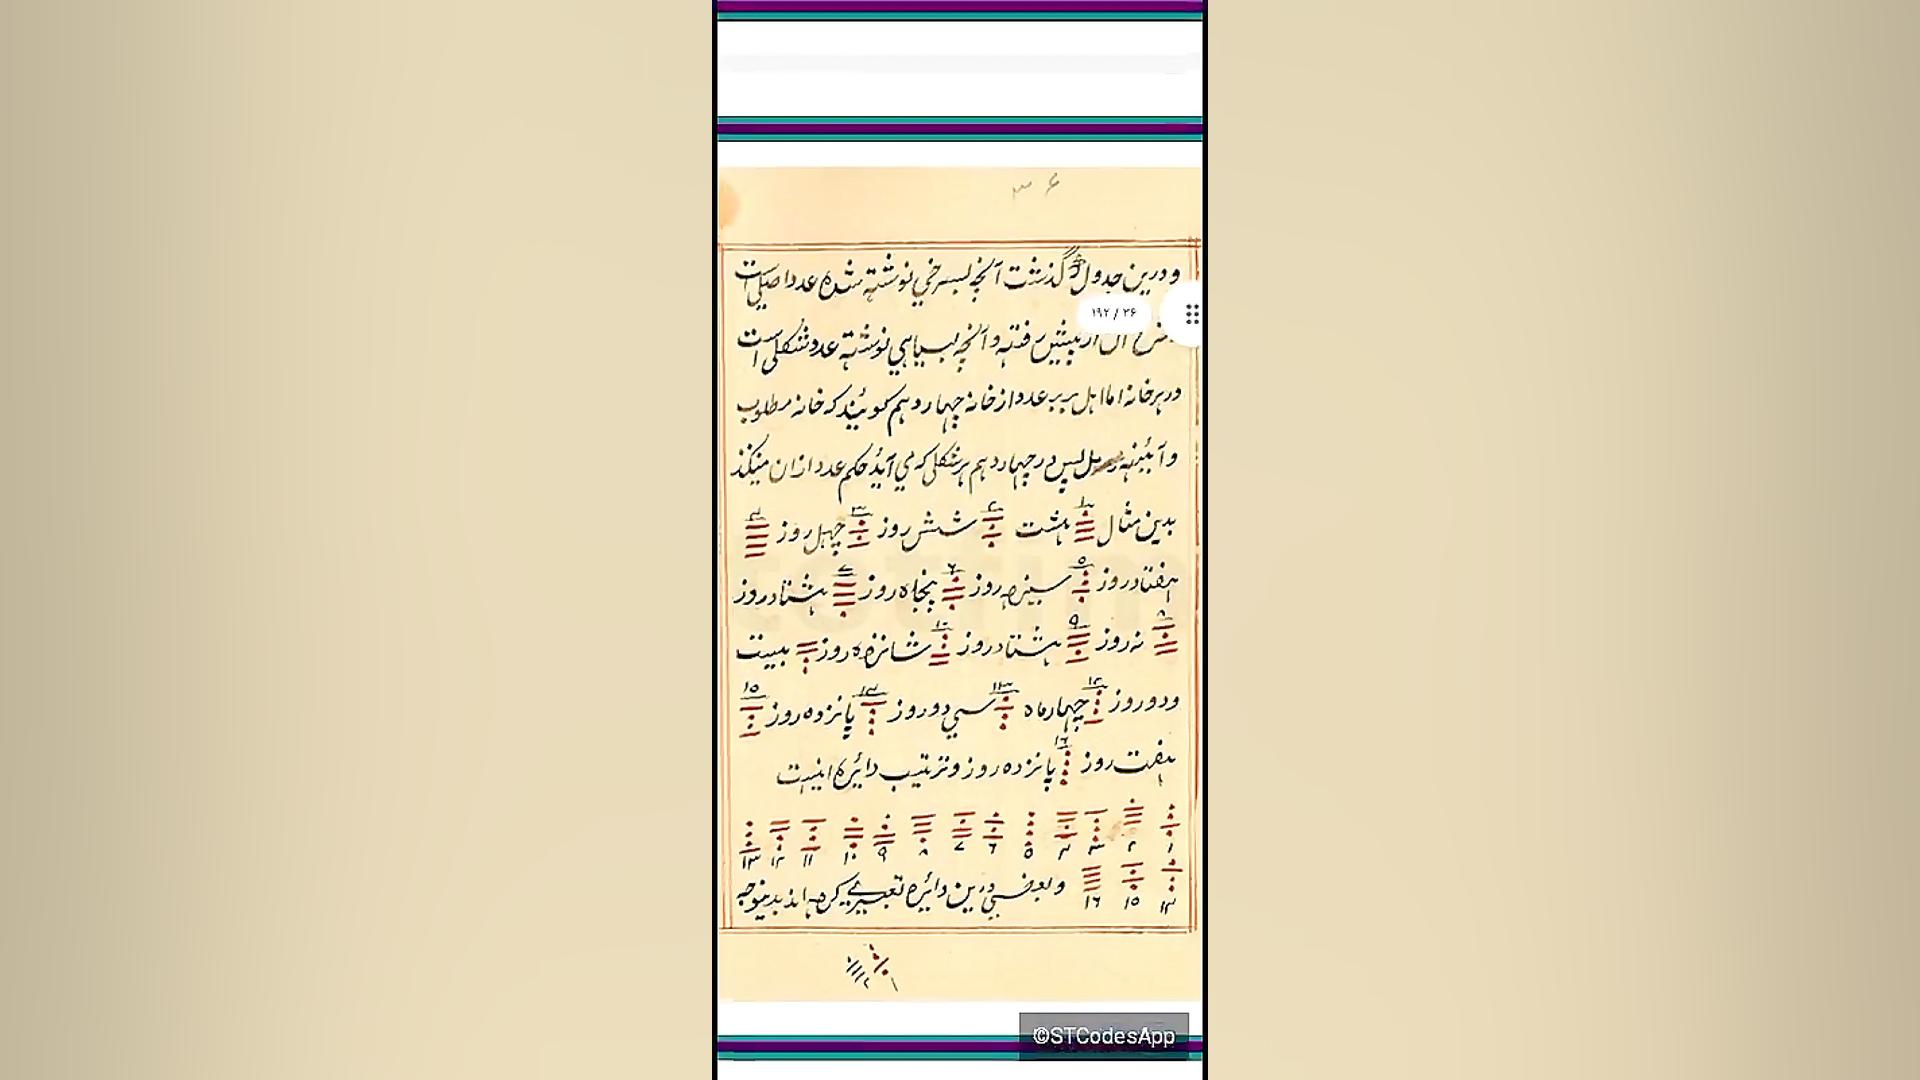 ۳۶
و درین جدول که گذشت آنچه بسرخی نوشته شده عدد اصلی است
۱۹۲ / ۳۶
آن از پیش رفته و آنچه بسیاهی نوشته عدد شکلی است
در هر خانه اما اهل بربر عدد از خانه چهاردهم گویند که خانه مطلوب
و آئینه رمل پس در چهاردهم هر شکلی که می آید حکم عدد از ان میکند
بدین مثال ۱ هشت ۲ شش روز ۳ چهل روز ۴
هفتاد روز ۵ سیزده روز ۶ پنجاه روز ۷ هشتاد روز
۸ نه روز ۹ هشتاد روز ۱۰ شانزده روز بیست
و دو روز ۱۲ چهار ماه ۱۳ سی و دو روز ۱۴ پانزده روز ۱۵
هفت روز ۱۶ پانزده روز و ترتیب دائره اینست
۱ ۲ ۳ ۴ ۵ ۶ ۷ ۸ ۹ ۱۰ ۱۱ ۱۲ ۱۳
۱۴ ۱۵ ۱۶ و بعضی درین دائره تغییری کرده اند بدینوجه
©STCodesApp